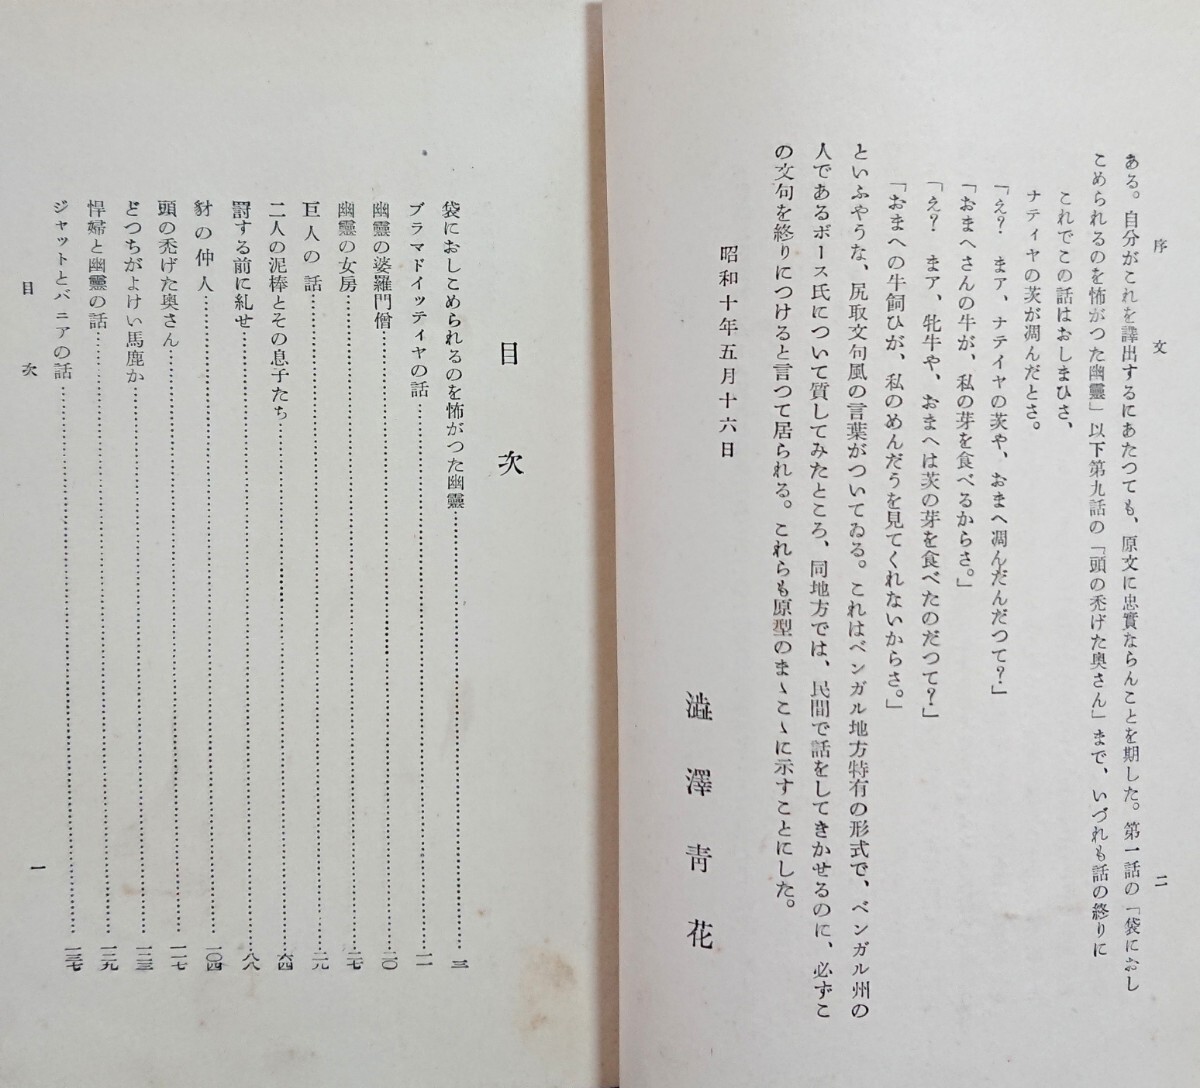 序文
二
ある。自分がこれを譯出するにあたつても、原文に忠實ならんことを期した。第一話の「袋におし
こめられるのを怖がつた幽靈」以下第九話の「頭の禿げた奥さん」まで、いづれも話の終りに
これでこの話はおしまひさ、
ナテイヤの茨が凋んだとさ。
「え？　まア、ナテイヤの茨や、おまへ凋んだんだつて？」
「おまへさんの牛が、私の芽を食べるからさ。」
「え？　まア、牝牛や、おまへは茨の芽を食べたのだつて？」
「おまへの牛飼ひが、私のめんだうを見てくれないからさ。」
といふやうな、尻取文句風の言葉がついてゐる。これはベンガル地方特有の形式で、ベンガル州の
人であるボース氏について質してみたところ、同地方では、民間で話をしてきかせるのに、必ずこ
の文句を終りにつけると言つて居られる。これらも原型のまゝこゝに示すことにした。
昭和十年五月十六日
澁澤青花
目次
袋におしこめられるのを怖がつた幽靈……三
ブラマドイッティヤの話……一一
幽靈の婆羅門僧……二〇
幽靈の女房……二七
巨人の話……二九
二人の泥棒とその息子たち……六四
罰する前に糺せ……八八
豺の仲人……一〇四
頭の禿げた奥さん……一一七
どつちがよけい馬鹿か……一二三
悍婦と幽靈の話……一二九
ジャットとバニアの話……一三七
目次
一